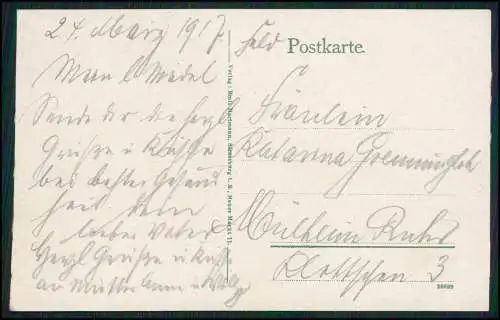 24. März 1917.
Mein l Mädel
Sende dir die herzl
Grüße u Küsse
bei bester Gesund
heit dein
lieber Vater
Herzl Grüße u Küsse
an Mutter
Feld Postkarte.
Verlag: Emil Hartmann, Strassburg i. E., Neuer Markt
Fräulein
Katarina
Mülheim Ruhr
3